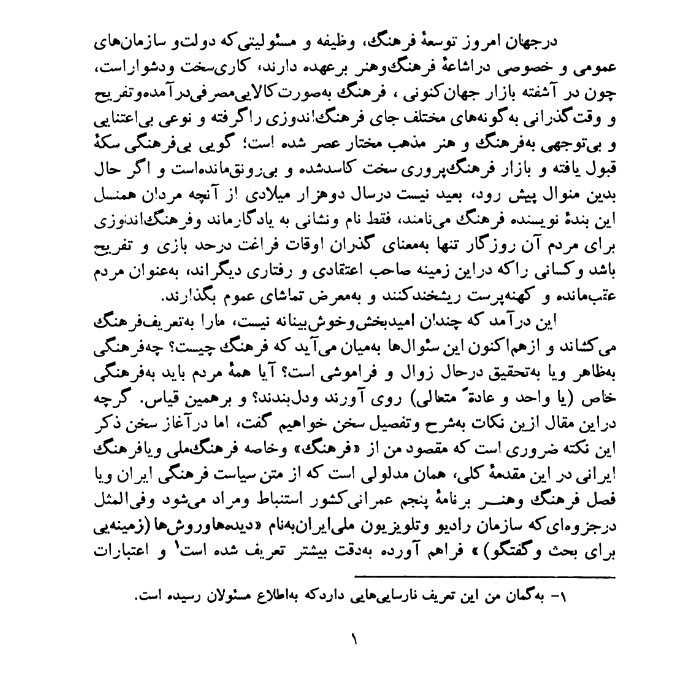 درجهان امروز توسعهٔ فرهنگ، وظیفه و مسئولیتی‌که دولت‌و سازمان‌های
عمومی و خصوصی دراشاعهٔ فرهنگ‌وهنر برعهده دارند، کاری‌سخت ودشواراست،
چون در آشفته بازار جهان‌کنونی ، فرهنگ به‌صورت‌کالایی‌مصرفی‌درآمده‌وتفریح
و وقت‌گذرانی به‌گونه‌های مختلف جای فرهنگ‌اندوزی راگرفته و نوعی بی‌اعتنایی
و بی‌توجهی به‌فرهنگ و هنر مذهب مختار عصر شده است؛ گویی بی‌فرهنگی سکهٔ
قبول یافته و بازار فرهنگ‌پروری سخت کاسدشده و بی‌رونق‌مانده‌است و اگر حال
بدین منوال پیش رود، بعید نیست درسال دوهزار میلادی از آنچه مردان همنسل
این بندهٔ نویسنده فرهنگ می‌نامند، فقط نام ونشانی به یادگارماند وفرهنگ‌اندوزی
برای مردم آن روزگار تنها به‌معنای گذران اوقات فراغت درحد بازی و تفریح
باشد وکسانی راکه دراین زمینه صاحب اعتقادی و رفتاری دیگراند، به‌عنوان مردم
عقب‌مانده و کهنه‌پرست ریشخندکنند و به‌معرض تماشای عموم بگذارند.
این درآمد که چندان امیدبخش‌وخوش‌بینانه نیست، مارا به‌تعریف‌فرهنگ
می‌کشاند و ازهم‌اکنون این سئوال‌ها به‌میان می‌آید که فرهنگ چیست؟ چه‌فرهنگی
به‌ظاهر ویا به‌تحقیق درحال زوال و فراموشی است؟ آیا همهٔ مردم باید به‌فرهنگی
خاص (یا واحد و عادةً متعالی) روی آورند ودل‌بندند؟ و برهمین قیاس. گرچه
دراین مقال ازین نکات به‌شرح وتفصیل سخن خواهیم گفت، اما درآغاز سخن ذکر
این نکته ضروری است که مقصود من از «فرهنگ» وخاصه فرهنگ‌ملی ویافرهنگ
ایرانی در این مقدمهٔ کلی، همان مدلولی است که از متن سیاست فرهنگی ایران ویا
فصل فرهنگ وهنـر برنامهٔ پنجم عمرانی‌کشور استنباط ومراد می‌شود وفی‌المثل
درجزوه‌ای‌که سازمان رادیو وتلویزیون ملی‌ایران‌به‌نام «دیده‌هاوروش‌ها(زمینه‌یی
برای بحث وگفتگو)» فراهم آورده به‌دقت بیشتر تعریف شده است۱ و اعتبارات
۱- به‌گمان من این تعریف نارسایی‌هایی داردکه به‌اطلاع مسئولان رسیده است.
۱